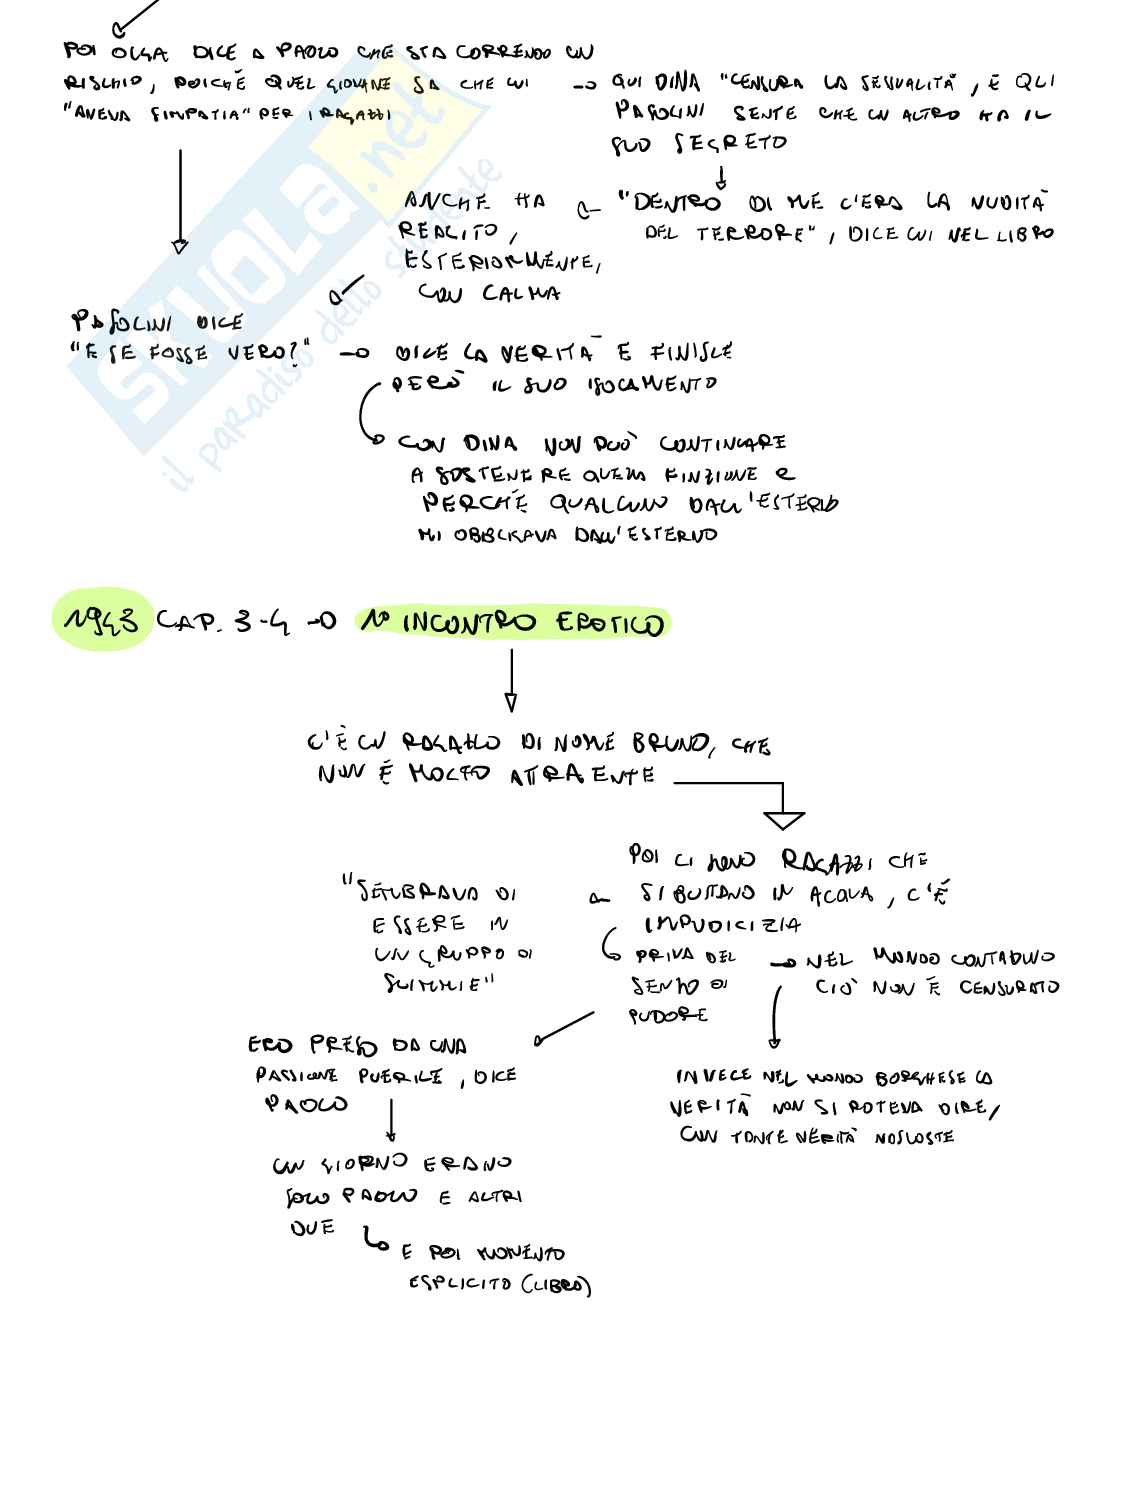 POI OLGA DICE A PAOLO CHE STA CORRENDO UN
RISCHIO, POICHÉ QUEL GIOVANE SA CHE LUI
"AVEVA SIMPATIA" PER I RAGAZZI
QUI DINA "CENSURA LA SESSUALITÀ", E QUI
PASOLINI SENTE CHE UN ALTRO HA IL
SUO SEGRETO
"DENTRO DI ME C'ERA LA NUDITÀ
DEL TERRORE", DICE LUI NEL LIBRO
ANCHE HA
REAGITO,
ESTERIORMENTE,
CON CALMA
PASOLINI DICE
"E SE FOSSE VERO?"
DICE LA VERITÀ E FINISCE
PERÒ IL SUO ISOLAMENTO
CON DINA NON PUÒ CONTINUARE
A SOSTENERE QUESTA FINZIONE E
PERCHÉ QUALCUNO DALL'ESTERNO
MI OBBLIGAVA DALL'ESTERNO
1943 CAP. 3-4 → 1° INCONTRO EROTICO
C'È UN RAGAZZO DI NOME BRUNO, CHE
NON È MOLTO ATTRAENTE
POI CI SONO RAGAZZI CHE
SI BUTTANO IN ACQUA, C'È
IMPUDICIZIA
"SEMBRAVA DI
ESSERE IN
UN GRUPPO DI
SCIMMIE"
PRIVA DEL
SENSO DI
PUDORE
NEL MONDO CONTADINO
CIÒ NON È CENSURATO
INVECE NEL MONDO BORGHESE LA
VERITÀ NON SI POTEVA DIRE,
CON TANTE VERITÀ NASCOSTE
ERO PRESO DA UNA
PASSIONE PUERILE, DICE
PAOLO
UN GIORNO ERANO
SOLO PAOLO E ALTRI
DUE
E POI MOMENTO
ESPLICITO (LIBRO)
SKUOLA.net
il paradiso dello studente